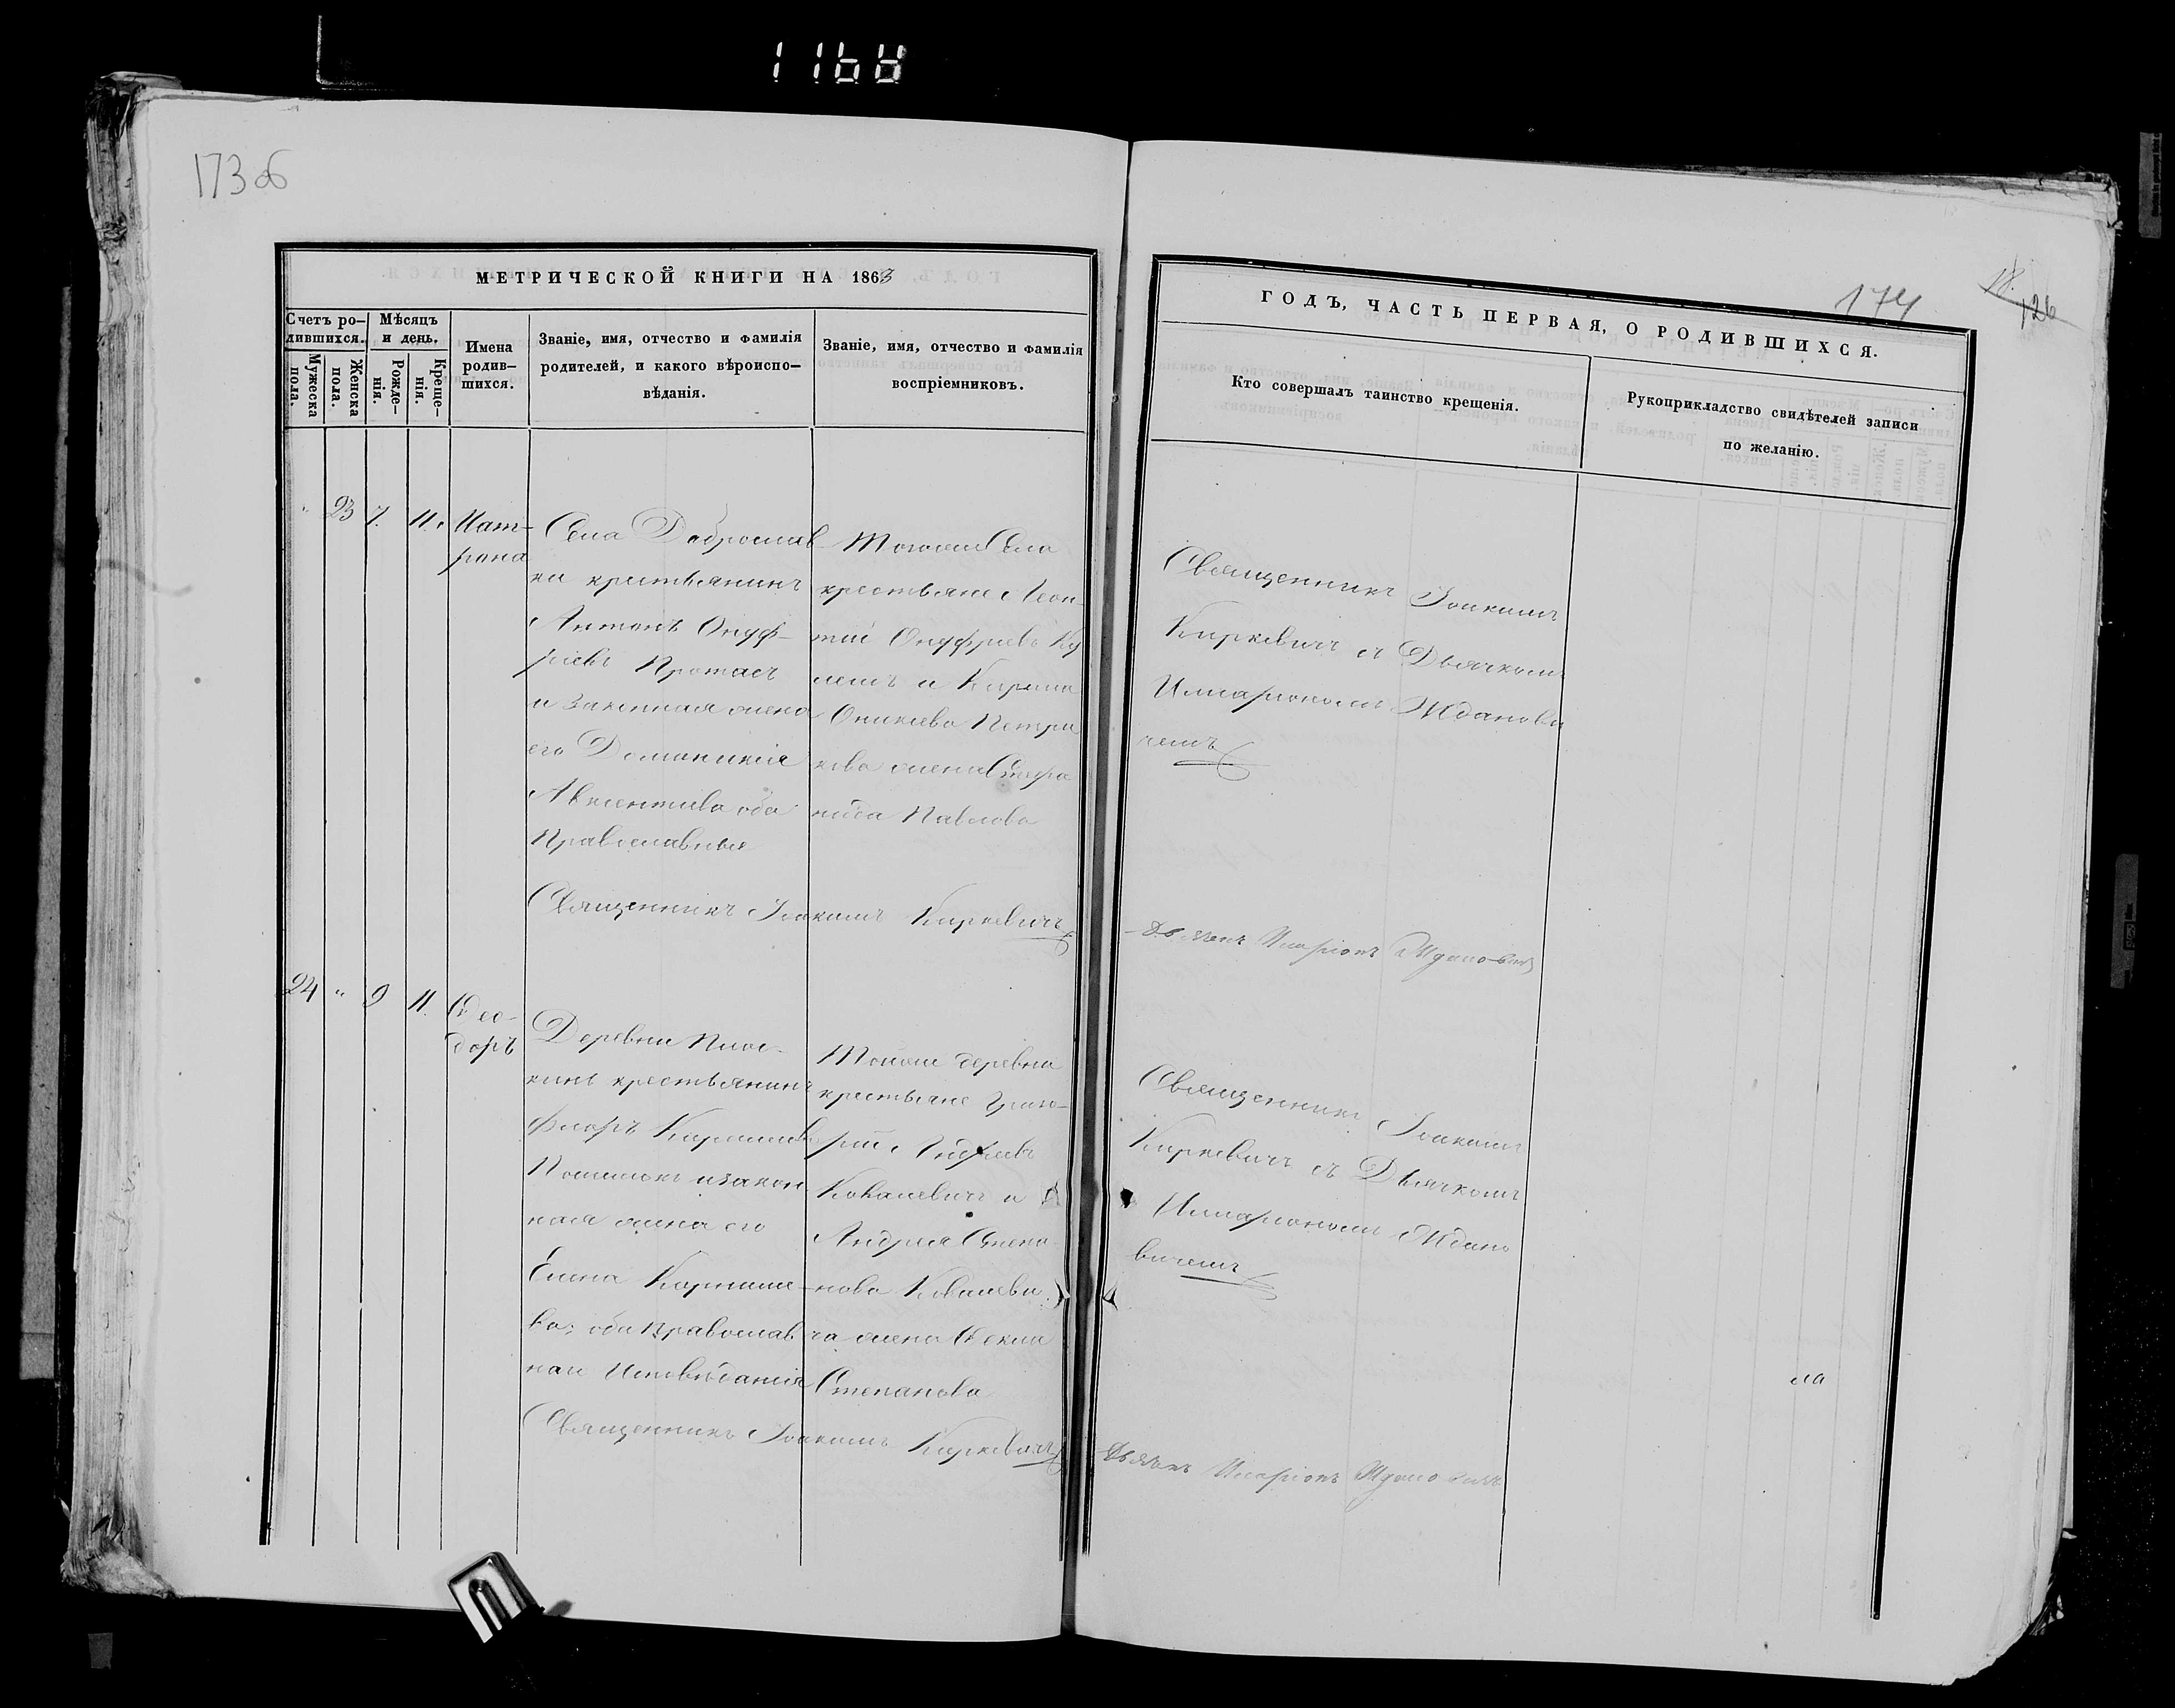 1168
173 об
МЕТРИЧЕСКОЙ КНИГИ НА 1863
Счетъ ро-
дившихся.
Мужеска
пола.
Женска
пола.
Мѣсяцъ
и день.
Рожде-
нія.
Креще-
нія.
Имена
родив-
шихся.
Званіе, имя, отчество и фамилія
родителей, и какого вѣроиспо-
вѣданія.
Званіе, имя, отчество и фамилія
воспріемниковъ.
" 23 7. 11.
Мат-
рона
Села Доброслав
ки крестьянинъ
Антонъ Онуф-
ріевъ Протасъ
и законная жена
его Доминикія
Авксентіева оба
Православные
Тогоже Села
крестьяне Леон-
тій Онуфріевъ
и
Оникіева
жена
Павлова
Священникъ Іоакимъ Киркевичъ
24 " 9 11.
Ѳео-
доръ
Деревни Плос-
кинь крестьянинъ
Флоръ
и закон
ная жена его
Елена
ва; оба православ
наго Исповѣданія
Тойже деревни
крестьяне Григо-
рій
Ковалевичъ и
Андрея Степа-
нова Ковалеви
ча жена Ѳекла
Степанова
Священникъ Іоакимъ Киркевичъ
174
18.
126
ГОДЪ, ЧАСТЬ ПЕРВАЯ, О РОДИВШИХСЯ.
Кто совершалъ таинство крещенія.
Рукоприкладство свидѣтелей записи
по желанію.
Священникъ Іоакимъ
Киркевичъ съ Дьячкомъ
Илларіономъ Жданови
чемъ
Дьячекъ Иларіонъ Ждановичъ
Священникъ Іоакимъ
Киркевичъ съ Дьячкомъ
Илларіономъ Ждано
вичемъ
ла
Дьячекъ Иларіонъ Ждановичъ